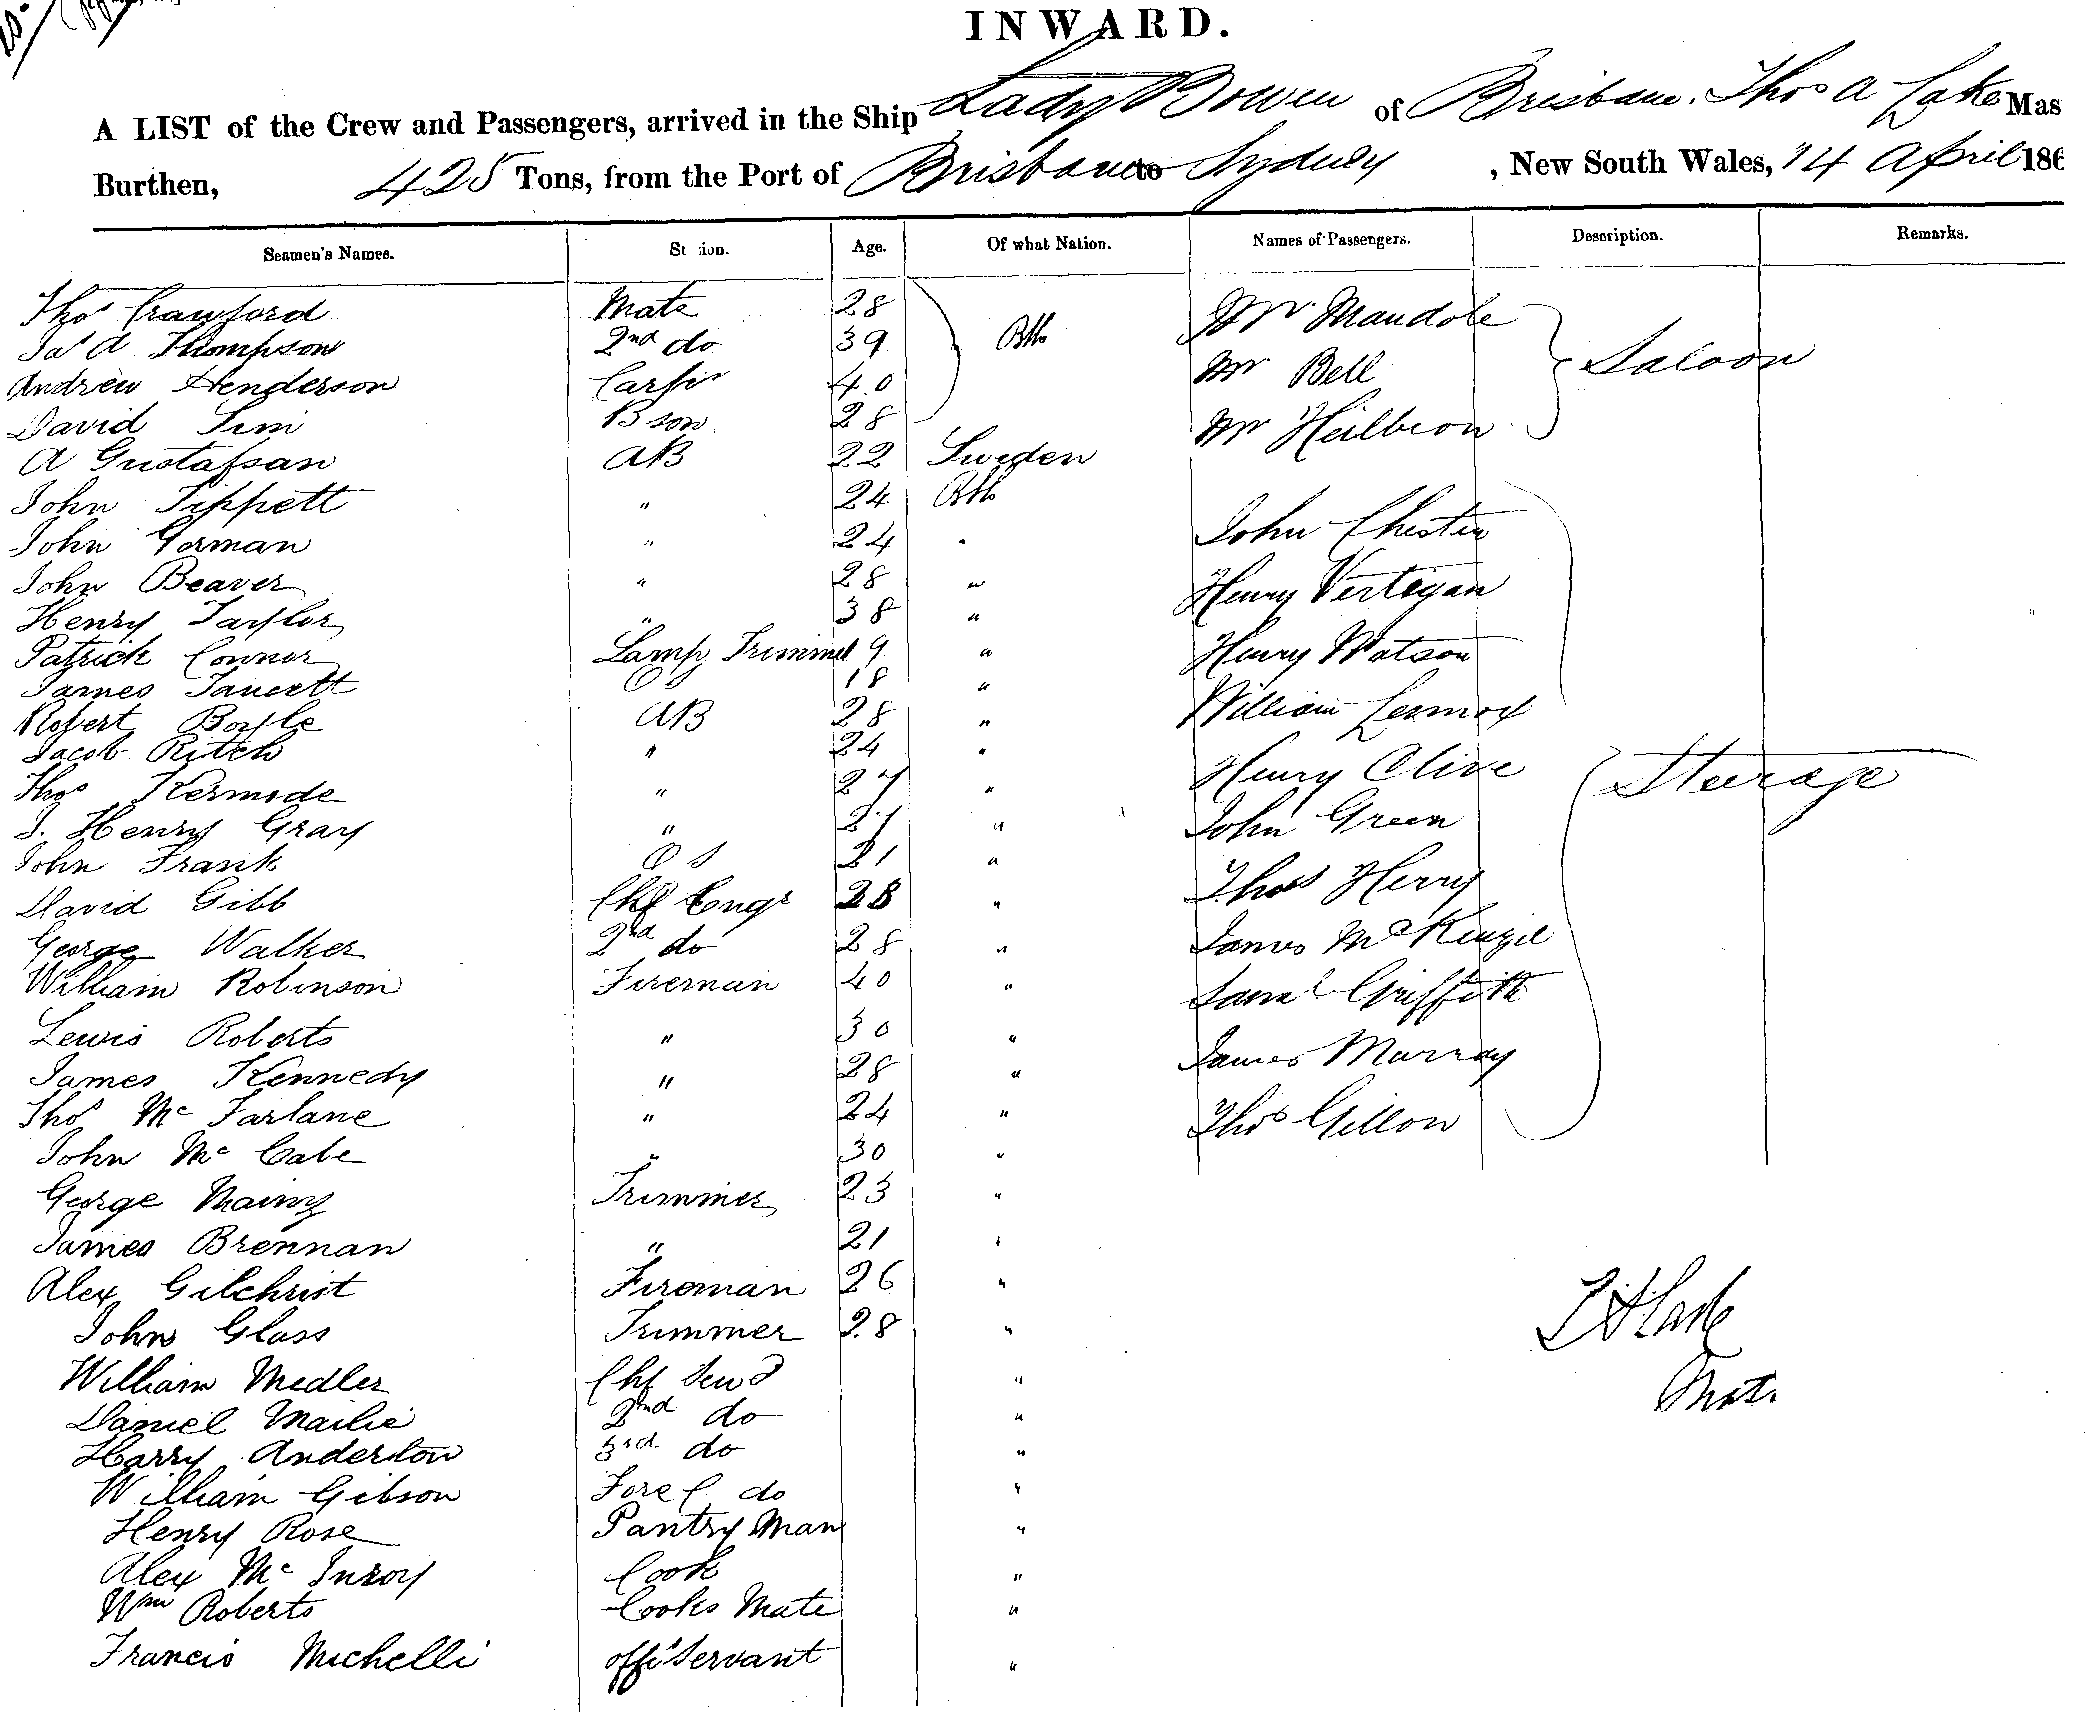 INWARD.
A LIST of the Crew and Passengers, arrived in the Ship Lady Bowen of Brisbane. Thos A Lake Mas
Burthen, 425 Tons, from the Port of Brisbane to Sydney, New South Wales, 14 April 186
Seamen's Names. St ion. Age. Of what Nation. Names of Passengers. Description. Remarks.
Thos Crawford Mate 28
Jas A Thompson 2nd do 39
Andrew Henderson Carptr 40
David Sim Bson 28
A Gustafsan AB 22 Sweden
John Tippett " 24
John Gorman " 24 "
John Beaver " 28 "
Henry Taylor " 38 "
Patrick Connor Lamp Trimmer 19 "
James Faucett 18 "
Robert Boyle AB 28 "
Jacob Ritch " 24 "
Thos Kermode " 27 "
J. Henry Gray " 27 "
John Frank O S 21 "
David Gibb Chf Engr 28 "
George Walker 2nd do 28 "
William Robinson Fireman 40 "
Lewis Roberts " 30 "
James Kennedy " 28 "
Thos McFarlane " 24 "
John McCabe " 30 "
George Trimmer 23 "
James Brennan " 21 "
Alex Gilchrist Fireman 26 "
John Glass Trimmer 28 "
William Medler Chf Stewd "
Daniel Mailie 2nd do "
Harry Anderton 3rd do "
William Gibson Fore C. do "
Henry Rose Pantry Man "
Alex McInroy Cook "
Wm Roberts Cooks Mate "
Francis Michelli offs Servant "
Mr Mandole
Mr Bell
Mr Heilbron
Saloon
John Chester
Henry Vertegan
Henry Watson
William Lennox
Henry Clive
John Green
Thos Herry
James McKenzie
Saml Griffith
James Murray
Thos Gillon
Steerage
T A Lake